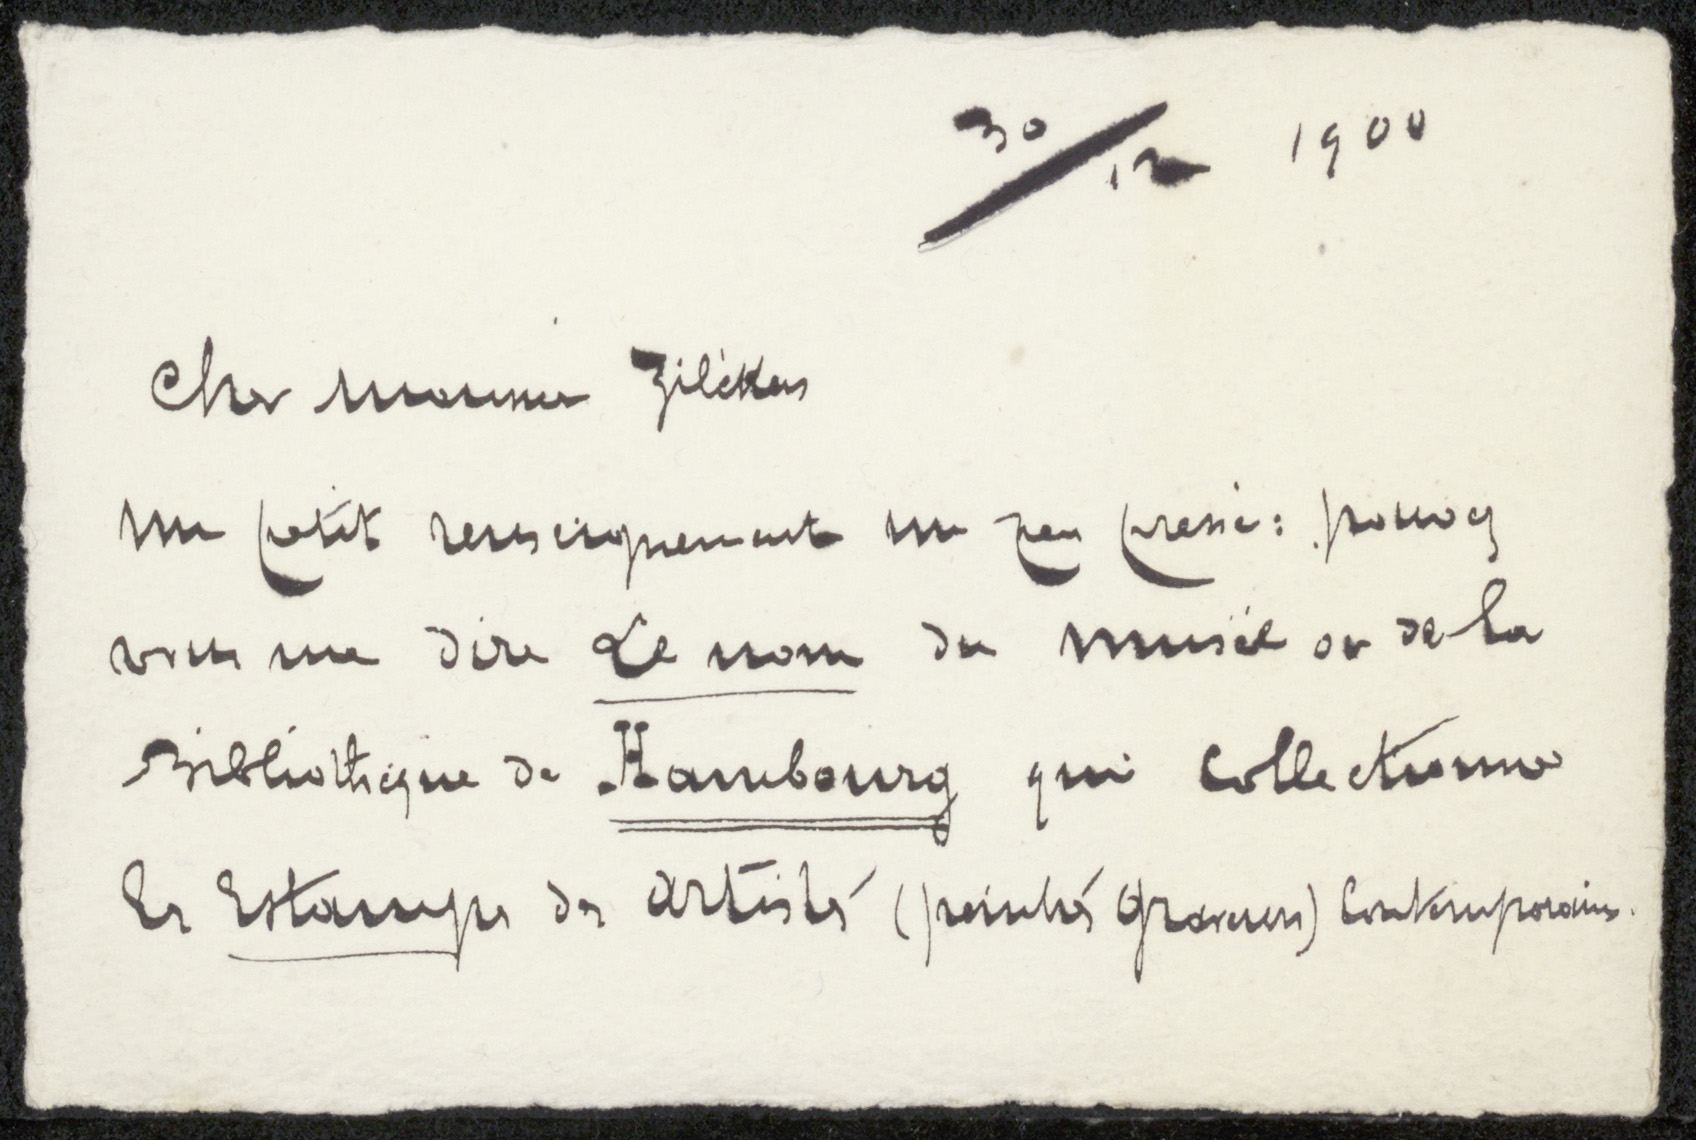 30/12 1900
Cher Monsieur Zilcken
Un petit renseignement un peu pressé: pouvez
vous me dire Le nom du Musée ou de la
Bibliothèque de Hambourg qui collectionne
les Estampes des Artistes (peintres Graveurs) Contemporains.